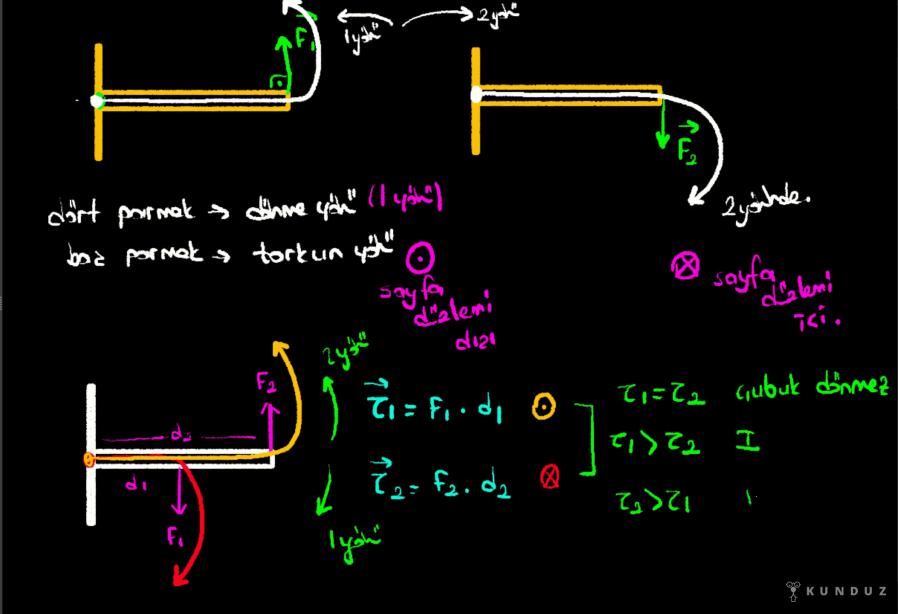 F₁
1 yön
2 yön
F₂
2 yönde.
dört parmak → dönme yön (1 yön)
baş parmak → torkun yön
sayfa
düzlemi
dışı
sayfa
düzlemi
içi.
2 yön
F₂
d₂
d₁
F₁
1 yön
τ₁ = F₁ . d₁
τ₂ = F₂ . d₂
τ₁ = τ₂ çubuk dönmez
τ₁ > τ₂ I
τ₂ > τ₁
KUNDUZ